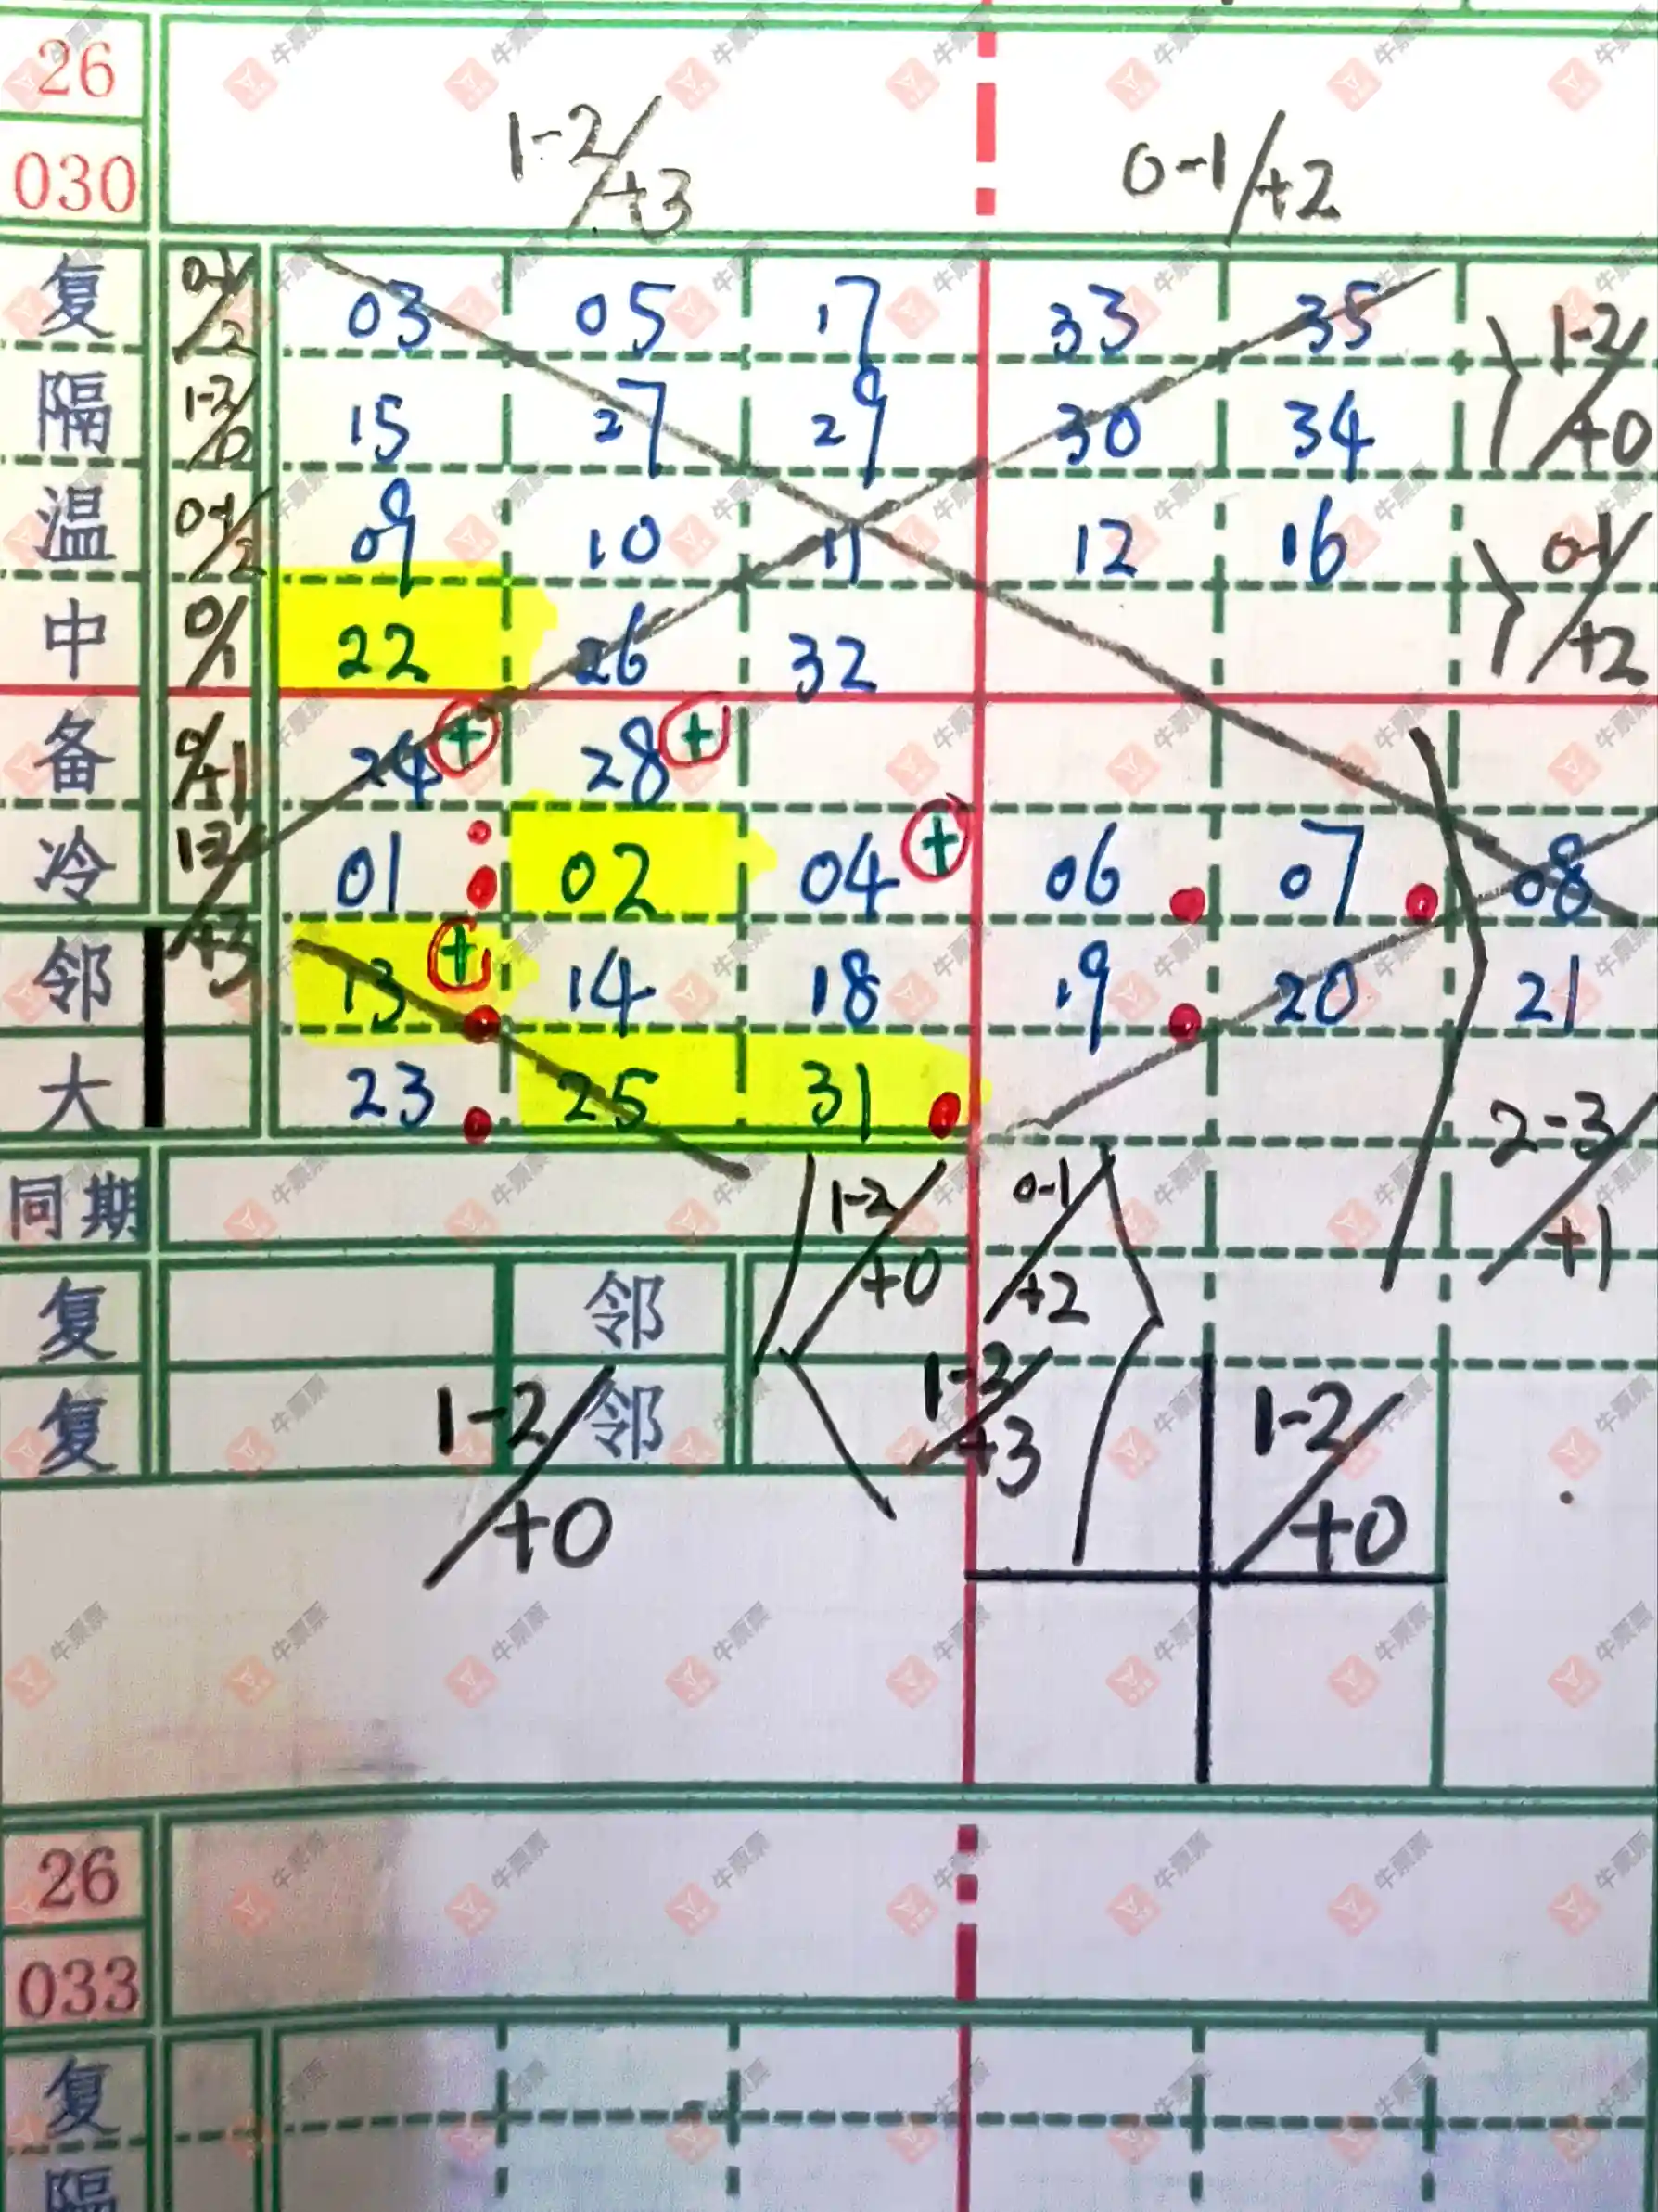 26
030
1-2/+3 0-1/+2
复 0-1/2 03 05 17 33 35
隔 15 27 29 30 34 1-2/+0
温 0-1/2 09 10 11 12 16
中 0/1 22 26 32 0-1/+2
备 0/+1 24 + 28 +
冷 1-2/+3 01 02 04 + 06 07 08
邻 13 + 14 18 19 20 21
大 23 25 31 2-3/+1
同期 1-2/+0 0-1/+2
复 邻
复 邻 1-2/+0 1-2/+3 1-2/+0
26
033
复
隔
牛票票